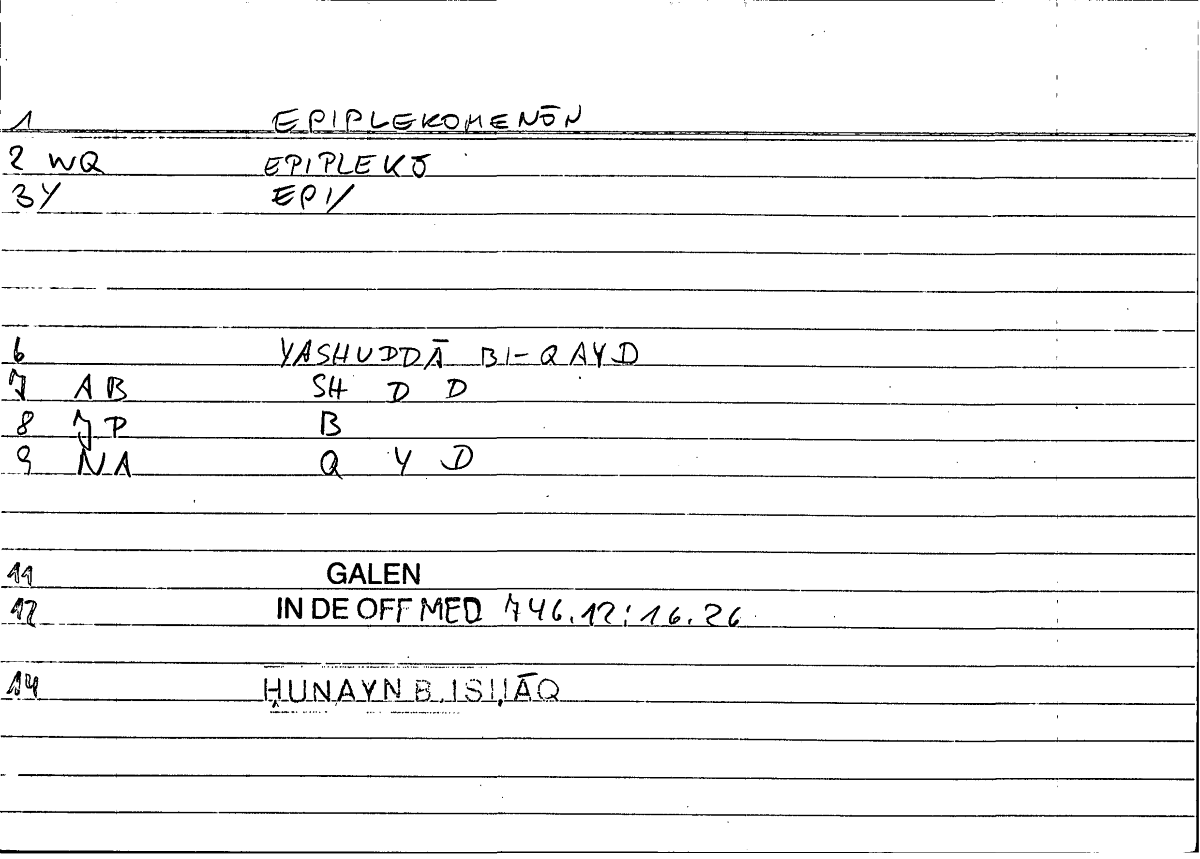 1 EPIPLEKOMENŌN
2 WQ EPIPLEKŌ
3Y EPI/
6 YASHUDDĀ BI-QAYD
7 AB SH D D
8 JP B
9 NA Q Y D
11 GALEN
12 IN DE OFF MED 746.12:16.26
14 ḤUNAYN B. ISḤĀQ